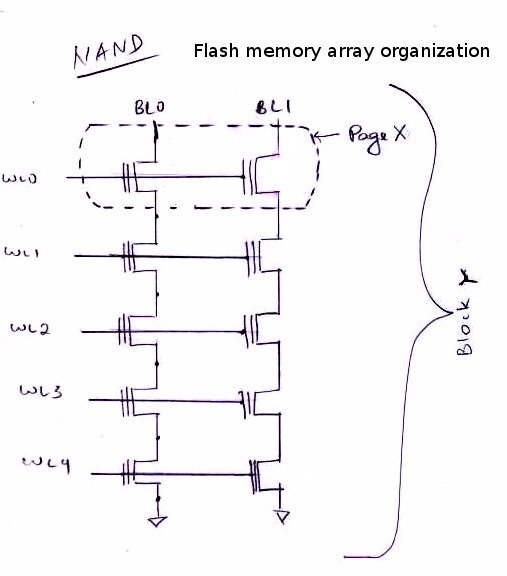 NAND Flash memory array organization
BL0 BL1
Page X
WL0
WL1
WL2
WL3
WL4
Block Y